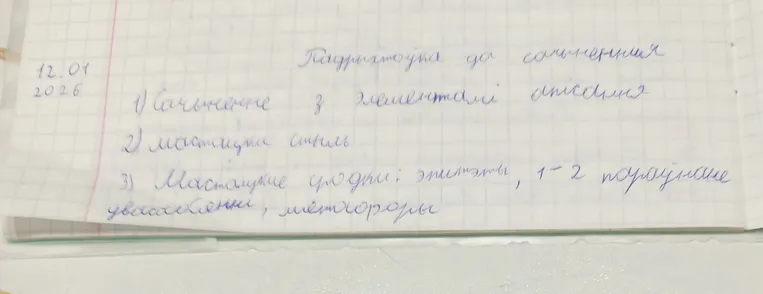 12.01
2026
Падрыхтоўка да сачынення
1) Сачыненне з элементамі апісання
2) мастацкі стыль
3) Мастацкие сродки: эпитэты, 1-2 параўнане
увасабленні, метафоры